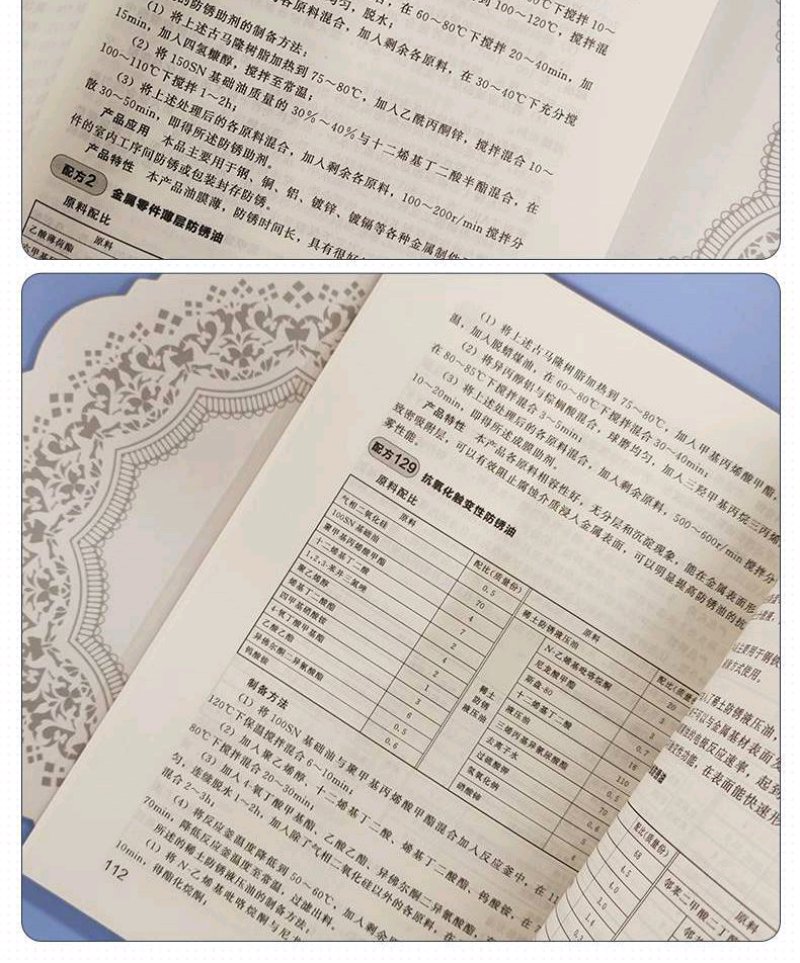 下搅拌10~
到100~120℃，搅拌混
在60~80℃下搅拌20~40min，加
匀，脱水；
各原料混合，加入剩余各原料，在30~40℃下充分搅
的防锈助剂的制备方法：
(1) 将上述古马隆树脂加热到75~80℃，加入乙酰丙酮锌，搅拌混合10~
15min，加入四氢糠醇，搅拌至常温；
(2) 将150SN基础油质量的30%~40%与十二烯基丁二酸半酯混合，在
100~110℃下搅拌1~2h；
(3) 将上述处理后的各原料混合，加入剩余各原料，100~200r/min搅拌分
散30~50min，即得所述防锈助剂。
产品应用 本品主要用于钢、铜、铝、镀锌、镀镉等各种金属制件
件的室内工序间防锈或包装封存防锈。
产品特性 本产品油膜薄，防锈时间长，具有很好
配方2 金属零件薄层防锈油
原料配比
原料
(1) 将上述古马隆树脂加热到75~80℃，加入甲基丙烯酸甲酯，
温，加入脱蜡煤油，在60~80℃下搅拌混合30~40min；
(2) 将异丙醇铝与棕榈酸混合，球磨均匀，加入三羟甲基丙烷三丙烯
在80~85℃下搅拌混合3~5min；
(3) 将上述处理后的各原料混合，加入剩余原料，500~600r/min搅拌分
10~20min，即得所述成膜助剂。
产品特性 本产品各原料相容性好，无分层和沉淀现象，能在金属表面形
致密吸附层，可以有效阻止腐蚀介质浸入金属表面，可以明显提高防锈油的抗
雾性能。
配方129 抗氧化触变性防锈油
原料配比
原料 配比(质量份) 原料 配比(质量
气相二氧化硅 0.5 稀土防锈液压油 20
100SN基础油 70 稀土防锈液压油 N-乙烯基吡咯烷酮 3
聚甲基丙烯酸甲酯 4 尼龙酸甲酯
十二烯基丁二酸 7 斯盘-80 0.7
1,2,3-苯并三氮唑 2 十二烯基丁二酸 16
聚乙烯醇 4 液压油 110
烯基丁二酸酯 2 三烯丙基异氰尿酸酯 0.5
四甲基硝酸铵 1 去离子水 70
4-氧丁酸甲基酯 3 过硫酸钾 0.6
乙酸乙酯 6 氢氧化钠 5
异佛尔酮二异氰酸酯 0.5 硝酸铈 4
钨酸铵 0.6
制备方法
(1) 将100SN基础油与聚甲基丙烯酸甲酯混合加入反应釜中，在11
120℃下保温搅拌混合6~10min；
(2) 加入聚乙烯醇、十二烯基丁二酸、烯基丁二酸酯、钨酸铵，在
80℃下搅拌混合20~30min；
(3) 加入4-氧丁酸甲基酯、乙酸乙酯、异佛尔酮二异氰酸酯，
匀，连续脱水1~2h，加入除了气相二氧化硅以外的各原料，在
混合2~3h；
(4) 将反应釜温度降低到50~60℃，加入剩余
70min，降低反应釜温度至常温，过滤出料。
所述的稀土防锈液压油的制备方法：
(1) 将N-乙烯基吡咯烷酮与尼龙
10min，得酯化烷酮；
112
主要用于钢铁
方式使用。
稀土防锈液压油，
可以与金属基材表面发
的电极反应速率，起到
性功能，在表面能快速形
配比(质量份) 原料
68 邻苯二甲酸二丁酯
4.5
4.0
3.0
1.4
0.3